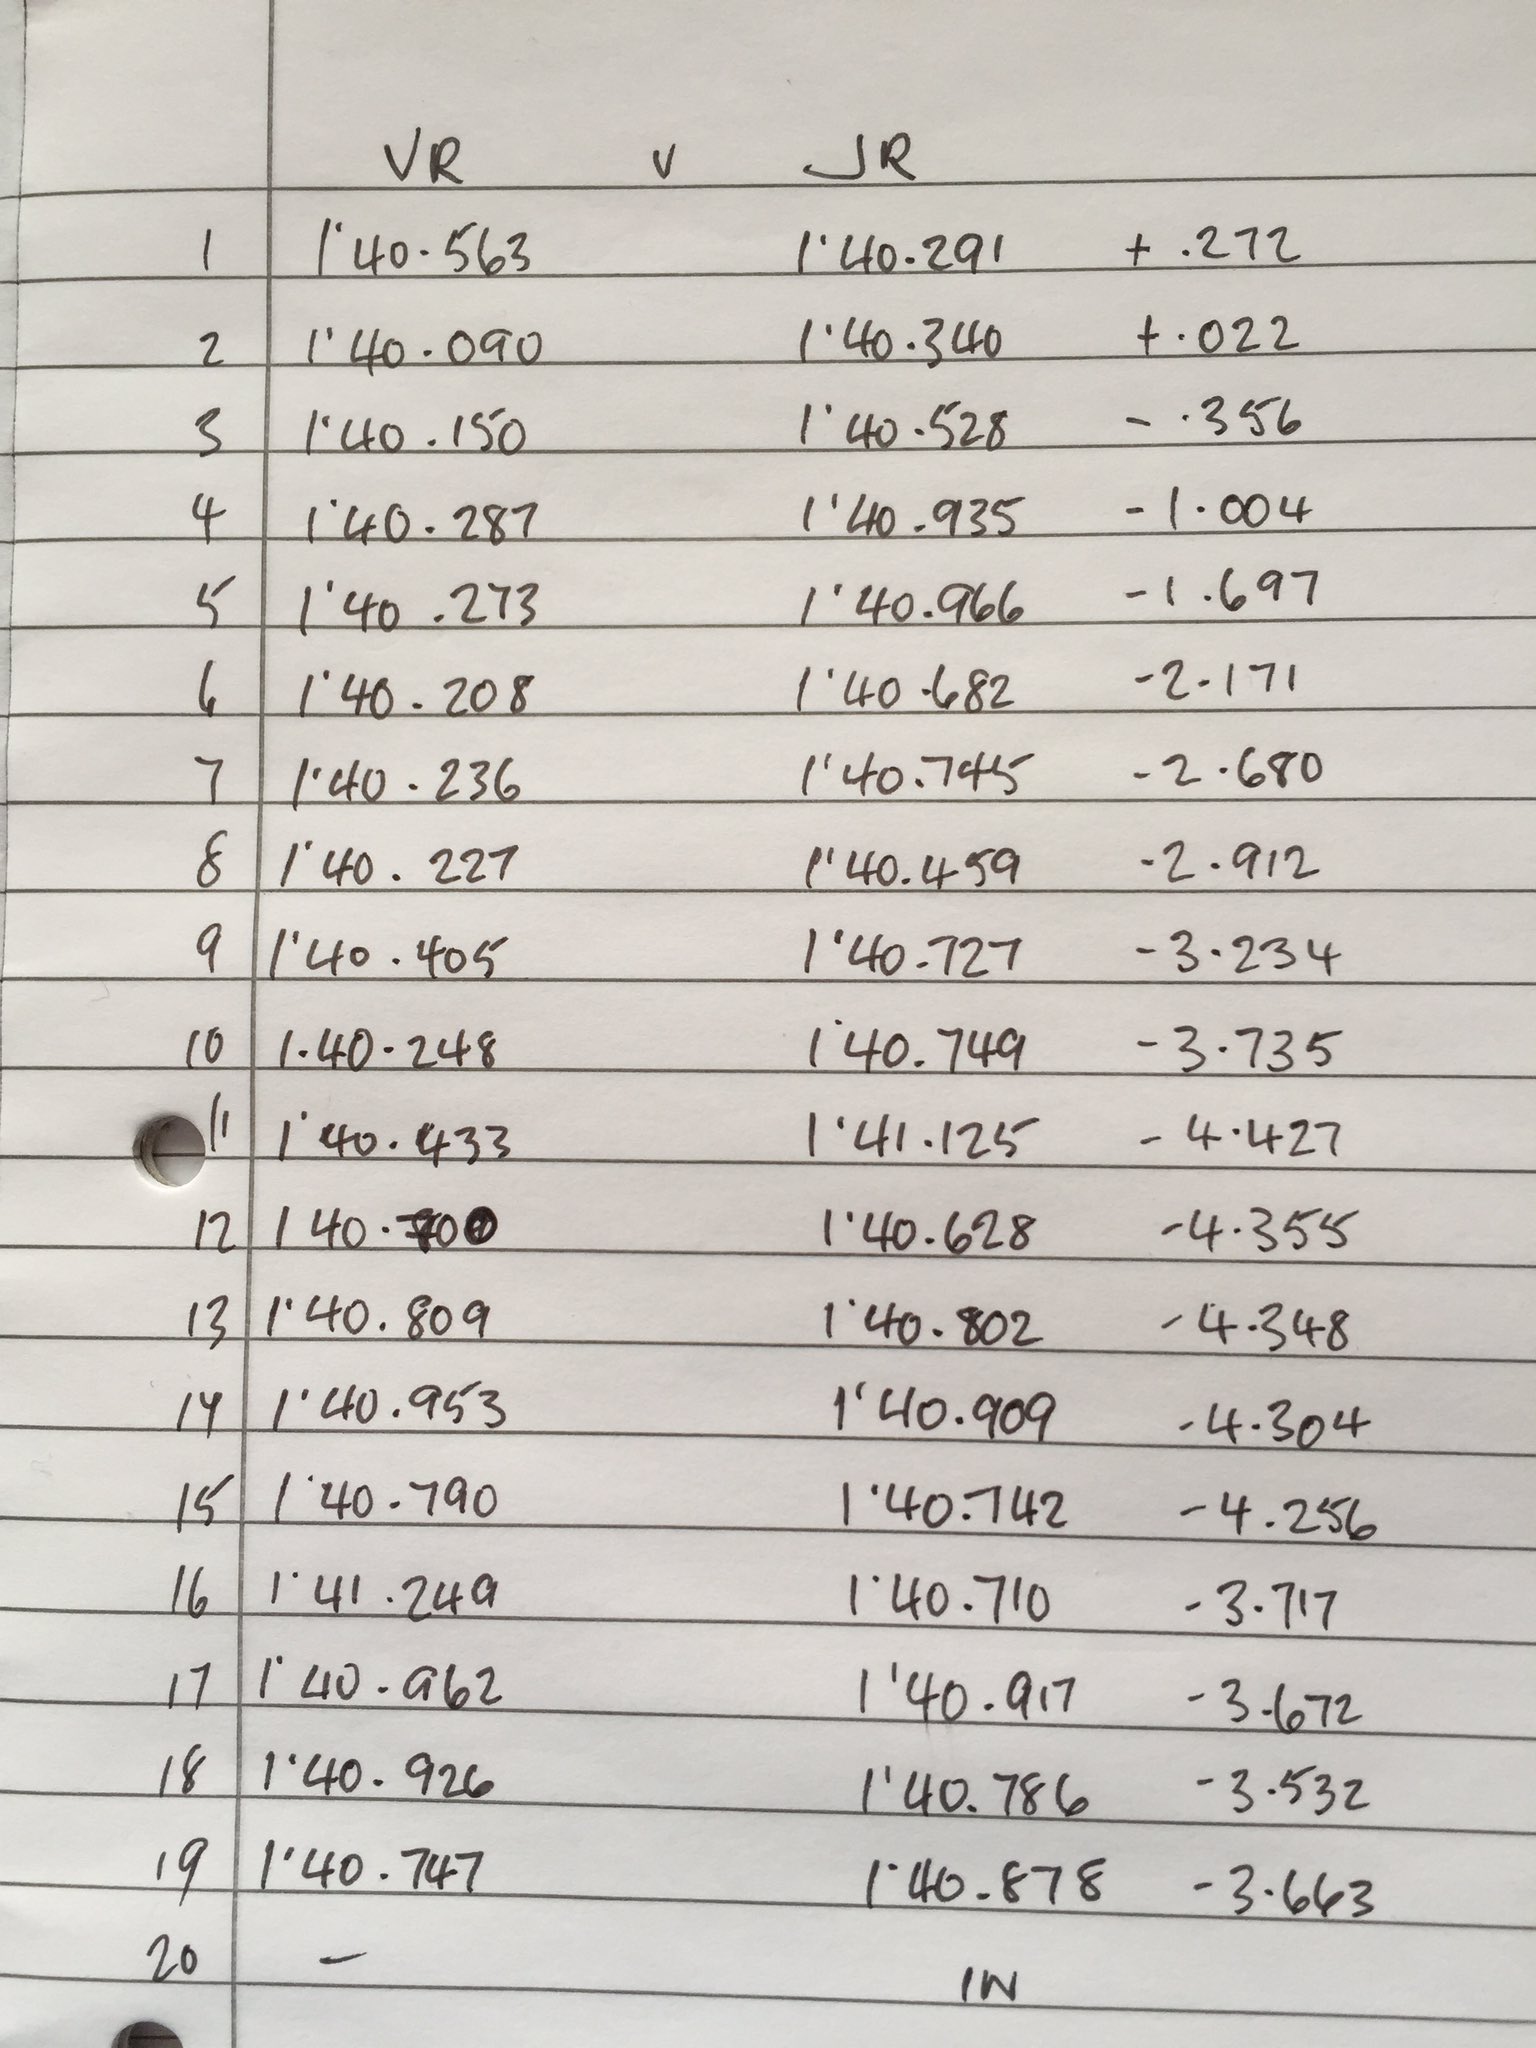 VR v JR
1 1'40.563 1'40.291 + .272
2 1'40.090 1'40.340 +.022
3 1'40.150 1'40.528 - .356
4 1'40.287 1'40.935 -1.004
5 1'40.273 1'40.966 -1.697
6 1'40.208 1'40.682 -2.171
7 1'40.236 1'40.745 -2.680
8 1'40.227 1'40.459 -2.912
9 1'40.405 1'40.727 -3.234
10 1.40.248 1'40.749 -3.735
11 1'40.433 1'41.125 -4.427
12 1 40.700 1'40.628 -4.355
13 1'40.809 1'40.802 -4.348
14 1'40.953 1'40.909 -4.304
15 1'40.790 1'40.742 -4.256
16 1'41.249 1'40.710 -3.717
17 1'40.962 1'40.917 -3.672
18 1'40.926 1'40.786 -3.532
19 1'40.747 1'40.878 -3.663
20 - IN